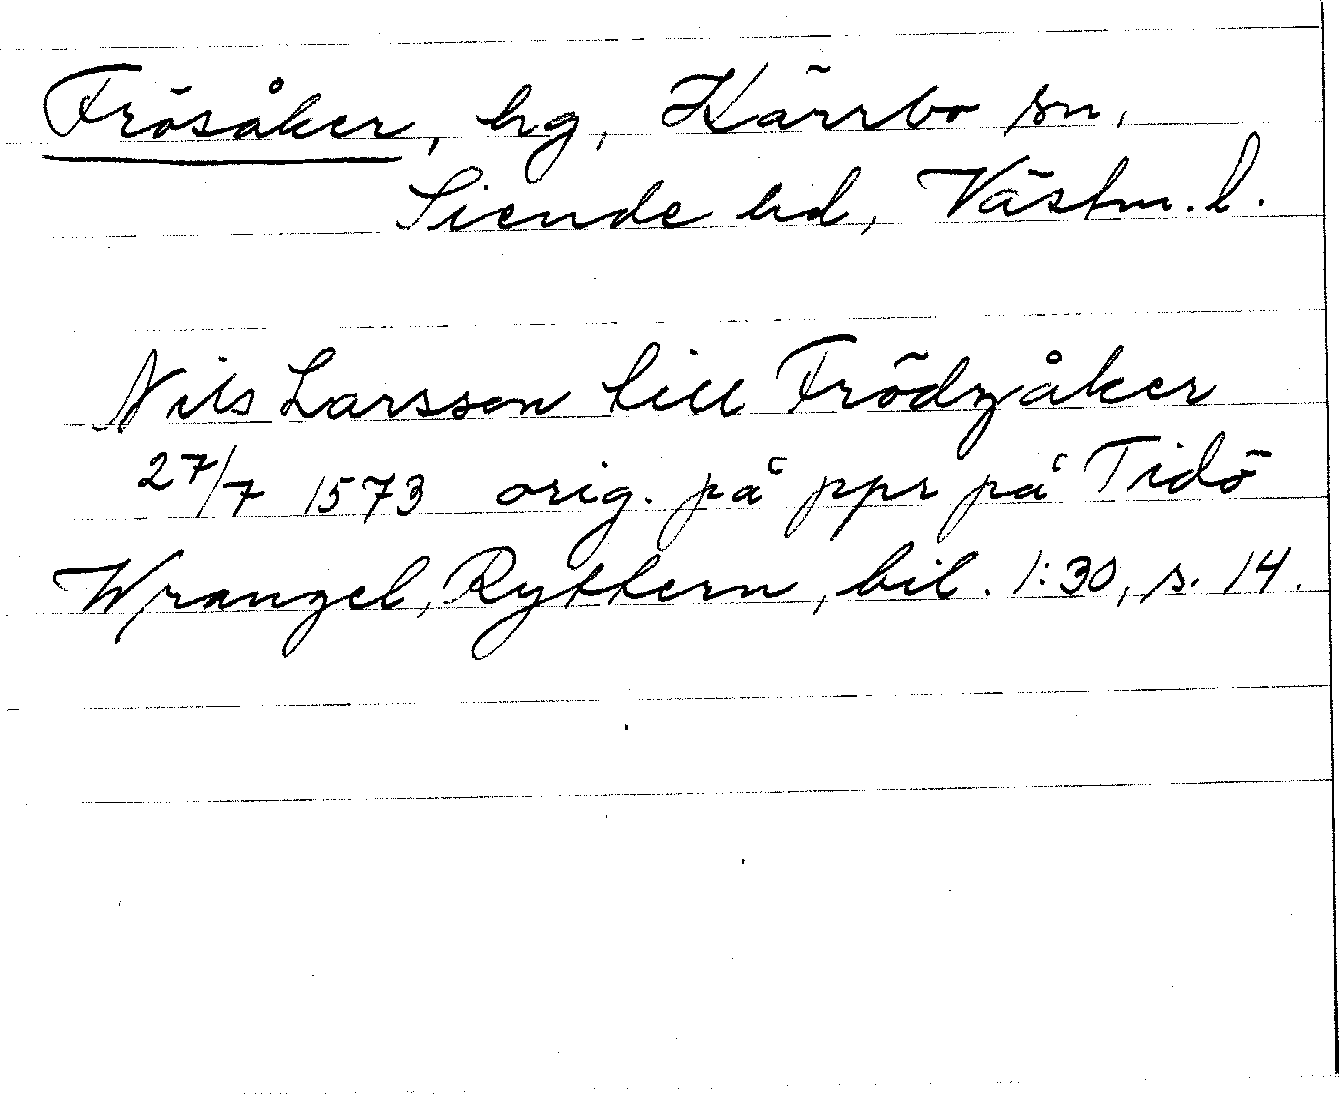 Frösåker, hg, Kärrbo sn,
Siende hd, Västm. l.
Nils Larsson till Frödzåker
27/7 1573 orig. på ppr på Tidö
Wrangel, Ryttern, bil. 1:30, s. 14.